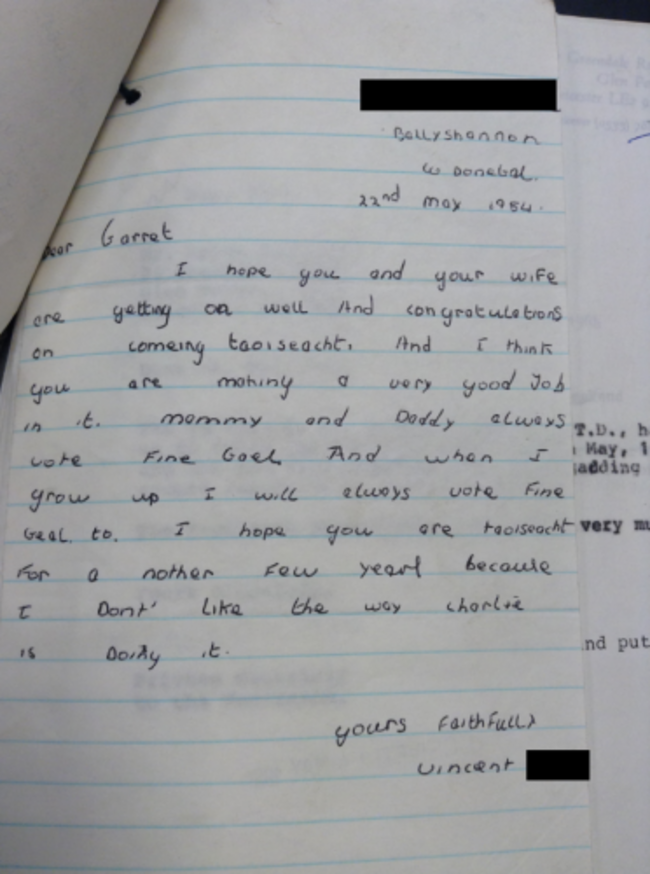 Ballyshannon
Co Donegal.
22nd may 1984.
Dear Garret
I hope you and your wife
are getting on well And congratulations
on comeing taoiseacht. And I think
you are making a very good Job
in it. mommy and Daddy always
vote Fine Gael And when I
grow up I will always vote Fine
Geal to. I hope you are taoiseacht
For a nother Few years because
I Dont' like the way charlie
is Doing it.
yours Faithfully
Vincent
T.D., h
May, 1
adding
very mu
nd put